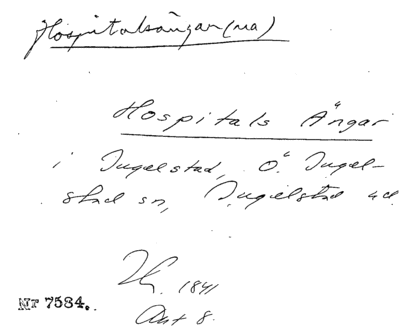 Hospitalsängar(na)
Hospitals Ängar
i Ingelstad, Ö. Ingel-
stad sn, Ingelstad
1841
Akt 8.
Nr 7584.